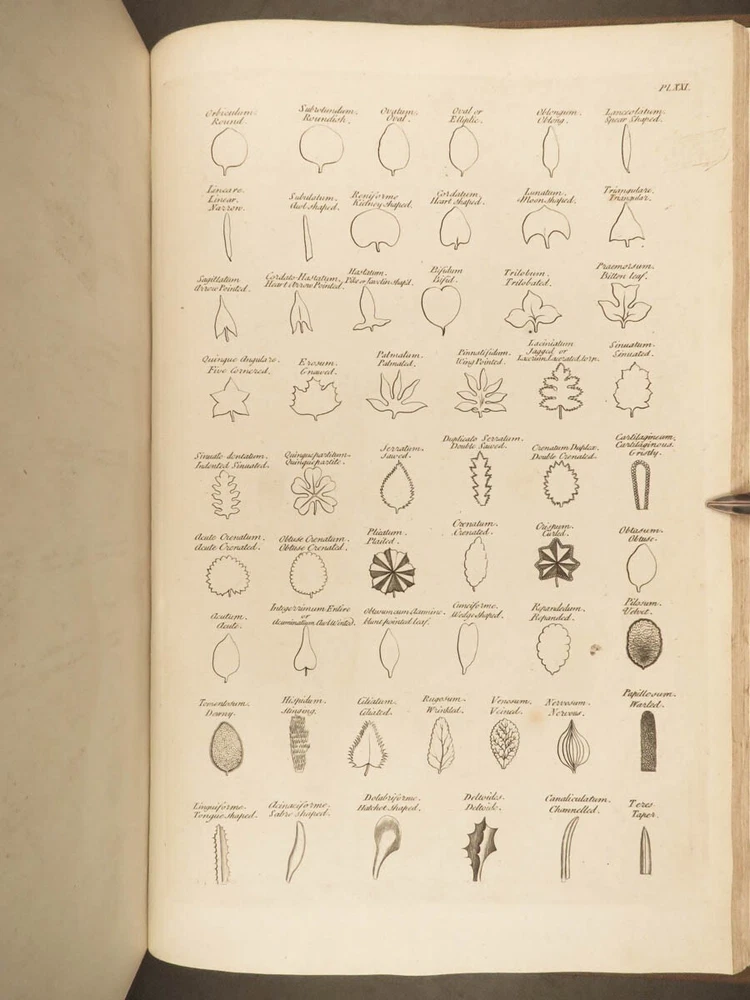 PL.XXI.
Orbiculum. Subrotundum. Ovatum. Oval or Oblongum. Lanceolatum.
Round. Roundish. Oval. Elliptic. Oblong. Spear Shaped.
Lineare. Subulatum. Reniforme. Cordatum. Lunatum. Triangulare.
Linear. Awl shaped. Kidney shaped. Heart shaped. Moon shaped. Triangular.
Narrow.
Sagittatum Cordato-Hastatum. Hastatum. Bifidum Trilobum. Praemorsum.
Arrow Pointed. Heart Arrow Pointed. Pike or Javelin shap'd. Bifid. Trilobated. Bitten leaf.
Quinque Angulare. Erosum. Palmatum. Pinnatifidum. Laciniatum Sinuatum.
Five Cornered. Gnawed. Palmated. Wing Pointed. Jagged or Sinuated.
Sinuato dentatum. Quinquepartitum. Serratum. Duplicato Serratum. Crenatum Duplex. Cartilagineum.
Indented Sinuated. Quinquepartite. Sawed. Double Sawed. Double Crenated. Cartilaginous.
Gristly.
Acute Crenatum. Obtuse Crenatum. Plicatum. Crenatum. Crispum. Obtusum.
Acute Crenated. Obtuse Crenated. Plaited. Crenated. Curled. Obtuse.
Acutum. Integerrimum Entire Cuneiforme. Repandulum. Pilosum.
Acute. or blunt pointed leaf. Wedge shaped. Repanded. Velvet.
Tomentosum. Hispidum. Ciliatum. Rugosum. Venosum. Nervosum. Papillosum.
Downy. Stinging. Ciliated. Wrinkled. Veined. Nervous. Warted.
Linguiforme. Acinaciforme. Dolabriforme. Deltoides. Canaliculatum. Teres.
Tongue shaped. Sabre shaped. Hatchet shaped. Deltoide. Channelled. Taper.